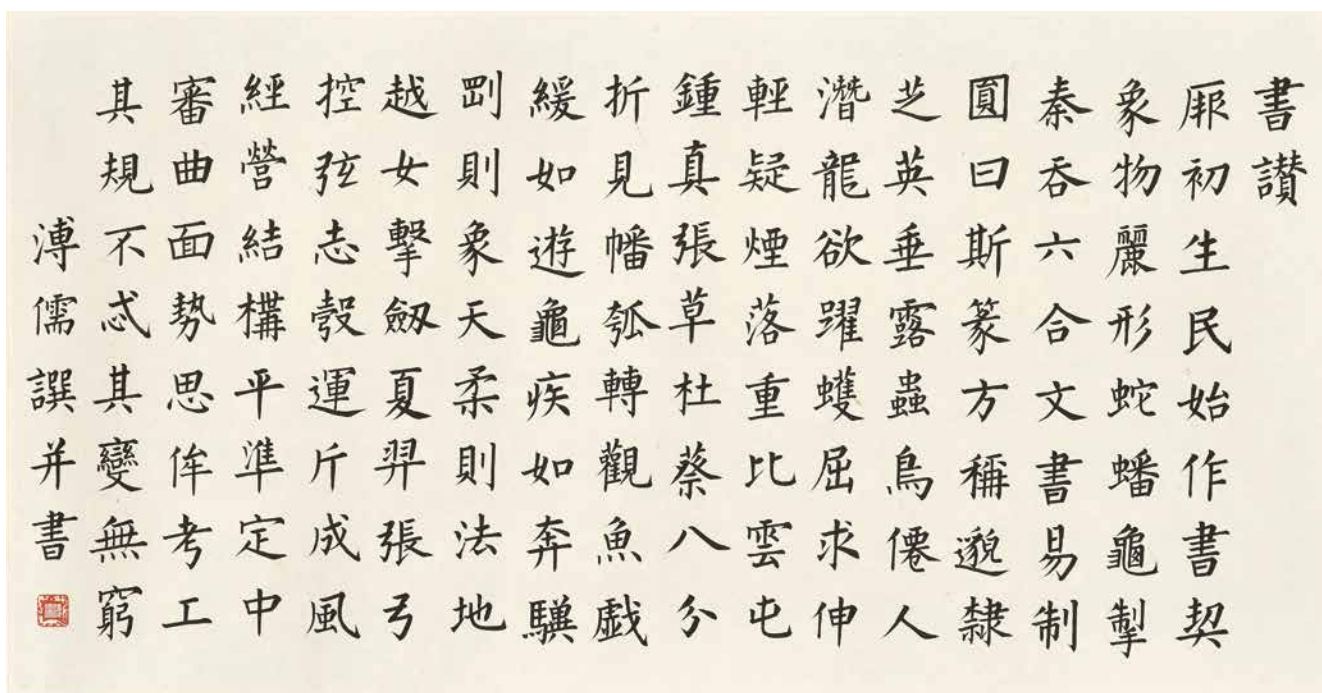 書讚
厥初生民始作書契
象物麗形蛇蟠龜掣
秦吞六合文書易制
圓曰斯篆方稱邈隸
芝英垂露蟲鳥僊人
潛龍欲躍蠖屈求伸
輕疑煙落重比雲屯
鍾真張草杜蔡八分
折見幡瓠轉觀魚戲
緩如遊龜疾如奔驥
剛則象天柔則法地
越女擊劒夏羿張弓
控弦志彀運斤成風
經營結構平準定中
審曲面勢思侔考工
其規不忒其變無窮
溥儒譔并書